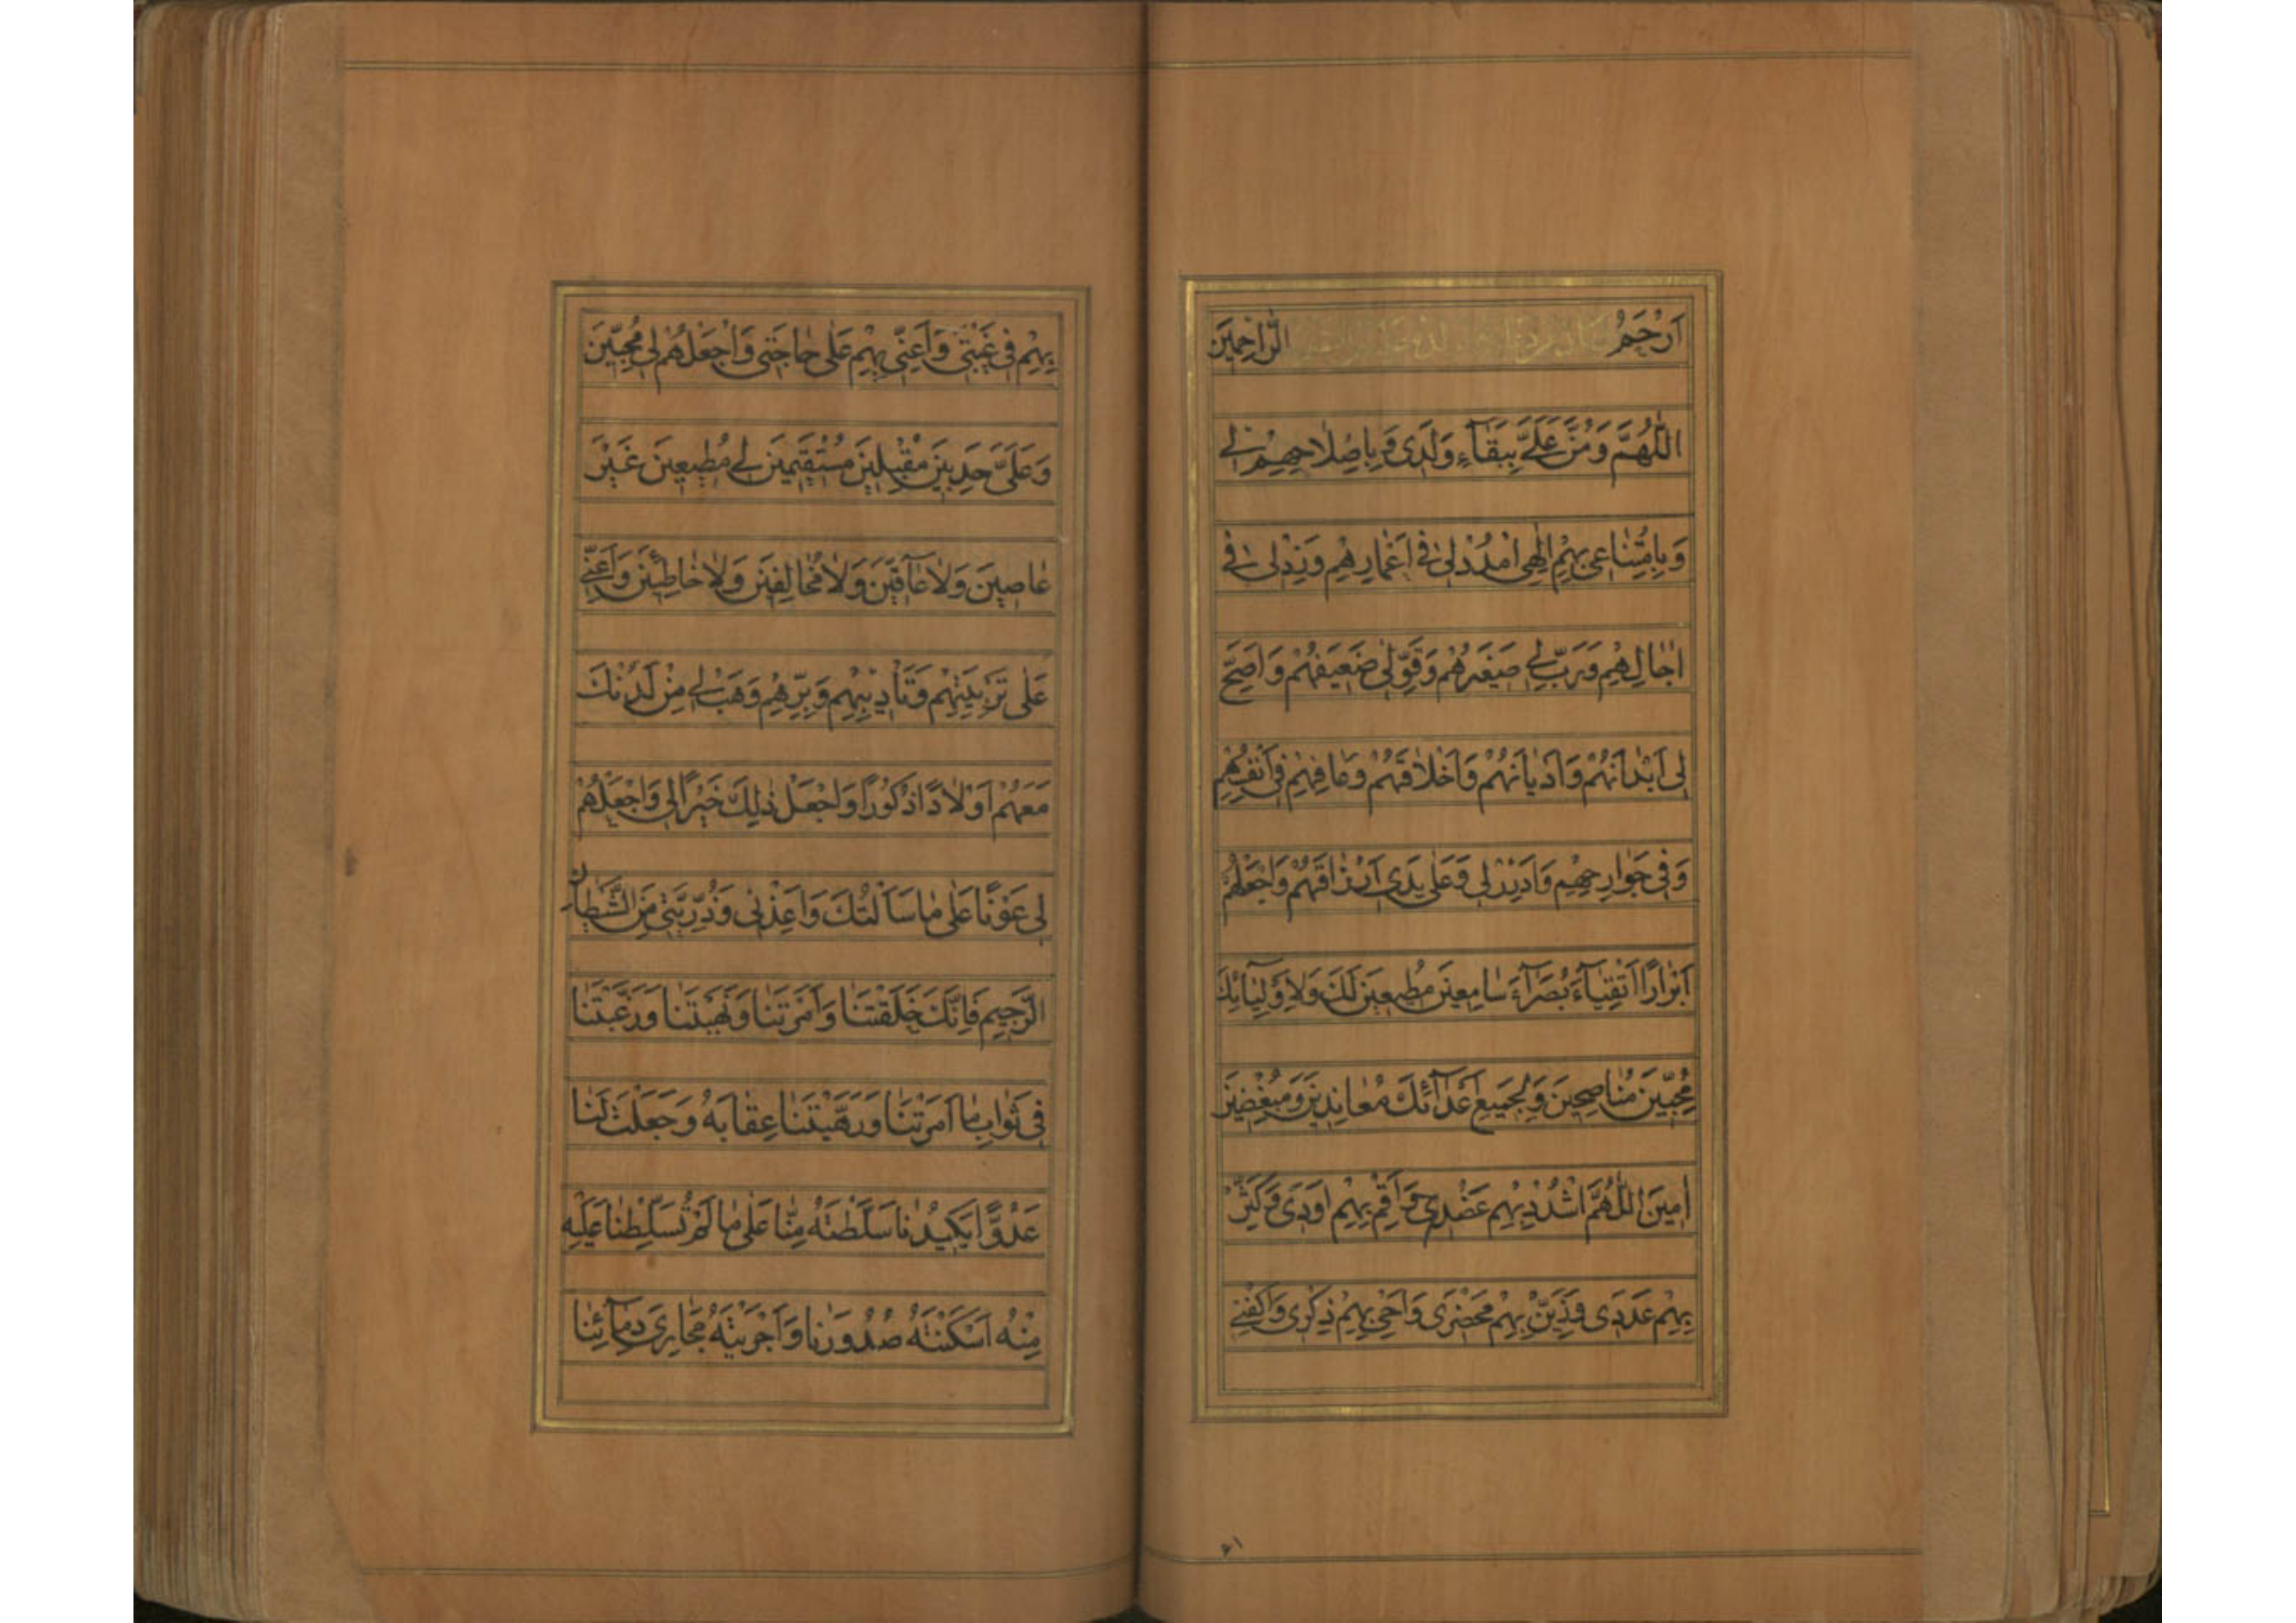 اَرْحَمَ الرّٰاحِمينَ
اَللّٰهُمَّ وَمُنَّ عَلَىَّ بِبَقٰآءِ وَلَدى وَ بِاِصْلاحِهِمْ لى
وَبِاِمْتِنٰاعى بِهِمْ اِلٰهى اُمْدُدْ لى فى اَعْمٰارِهِمْ وَزِدْ لى فى
اٰجٰالِهِمْ وَرَبِّ لى صَغيرَهُمْ وَقَوِّ لى ضَعيفَهُمْ وَاَصِحَّ
لى اَبْدٰانَهُمْ وَاَدْيٰانَهُمْ وَاَخْلاٰقَهُمْ وَعٰافِهِمْ فى اَنْفُسِهِمْ
وَفى جَوٰارِحِهِمْ وَاَدْرِرْ لى وَعَلٰى يَدى اَرْزٰاقَهُمْ وَاجْعَلْهُمْ
اَبْرٰارًا اَتْقِيٰآءَ بُصَرٰآءَ سٰامِعينَ مُطيعينَ لَكَ وَلاَِوْلِيٰائِكَ
مُحِبّينَ مُنٰاصِحينَ وَلِجَميعِ اَعْدٰآئِكَ مُعٰانِدينَ وَمُبْغِضينَ
اٰمينَ اَللّٰهُمَّ اشْدُدْ بِهِمْ عَضُدى وَاَقِمْ بِهِمْ اَوَدى وَكَثِّرْ
بِهِمْ عَدَدى وَزَيِّنْ بِهِمْ مَحْضَرى وَاَحْىِ بِهِمْ ذِكْرى وَاكْفِنى
بِهِمْ فى غَيْبَتى وَاَعِنّى بِهِمْ عَلٰى حٰاجَتى وَاجْعَلْهُمْ لى مُحِبّينَ
وَعَلَىَّ حَدِبينَ مُقْبِلينَ مُسْتَقيمينَ لى مُطيعينَ غَيْرَ
عٰاصينَ وَلاٰ عٰآقّينَ وَلاٰ مُخٰالِفينَ وَلاٰ خٰاطِئينَ وَاَعِنّى
عَلٰى تَرْبِيَتِهِمْ وَتَاْديبِهِمْ وَبِرِّهِمْ وَهَبْ لى مِنْ لَدُنْكَ
مَعَهُمْ اَوْلاٰدًا ذُكُورًا وَاجْعَلْ ذٰلِكَ خَيْرًا لى وَاجْعَلْهُمْ
لى عَوْنًا عَلٰى مٰا سَاَلْتُكَ وَاَعِذْنى وَذُرِّيَّتى مِنَ الشَّيْطٰانِ
الرَّجيمِ فَاِنَّكَ خَلَقْتَنٰا وَاَمَرْتَنٰا وَنَهَيْتَنٰا وَرَغَّبْتَنٰا
فى ثَوٰابِ مٰا اَمَرْتَنٰا وَرَهَّبْتَنٰا عِقٰابَهُ وَجَعَلْتَ لَنٰا
عَدُوًّا يَكيدُنٰا سَلَّطْتَهُ مِنّٰا عَلٰى مٰا لَمْ تُسَلِّطْنٰا عَلَيْهِ
مِنْهُ اَسْكَنْتَهُ صُدُورَنٰا وَاَجْرَيْتَهُ مَجٰارِىَ دِمٰآئِنٰا